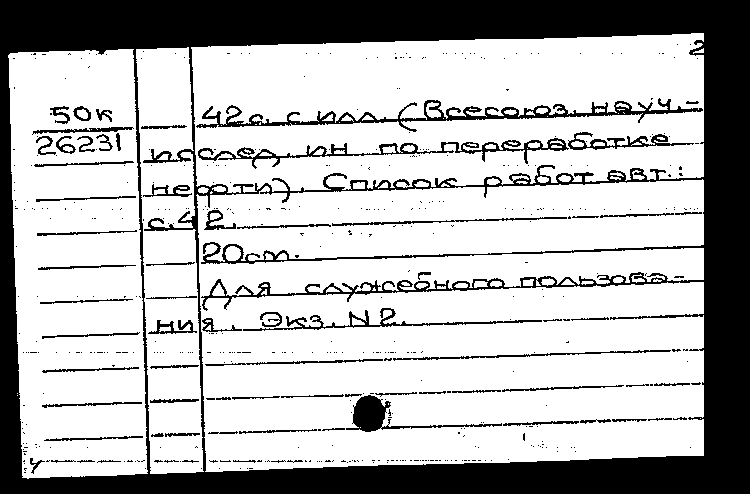 2
50к 42с. с илл. (Всесоюз. науч.-
26231 исслед. ин по переработке
нефти). Список работ авт.:
с.42.
20см.
Для служебного пользова-
ния. Экз. N2.